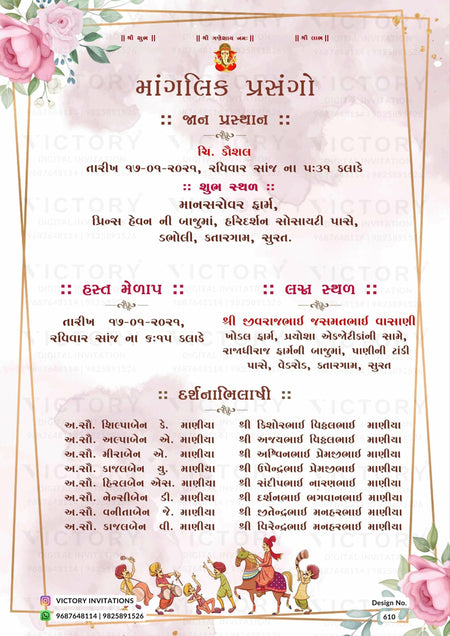 || શ્રી શુભ ||
|| શ્રી ગણેશાય નમઃ ||
|| શ્રી લાભ ||
માંગલિક પ્રસંગો
:: જાન પ્રસ્થાન ::
ચિ. કૌશલ
તારીખ ૧૭-૦૧-૨૦૨૧, રવિવાર સાંજ ના ૫:૩૧ કલાકે
:: શુભ સ્થળ ::
માનસરોવર ફાર્મ,
પ્રિન્સ હેવન ની બાજુમાં, હરિદર્શન સોસાયટી પાસે,
ડભોલી, કતારગામ, સુરત.
:: હસ્ત મેળાપ ::
તારીખ ૧૭-૦૧-૨૦૨૧,
રવિવાર સાંજ ના ૬:૧૫ કલાકે
:: લગ્ન સ્થળ ::
શ્રી જીવરાજભાઈ જસમતભાઈ વાસાણી
ખોડલ ફાર્મ, પ્રયોશા એડજોટીકાંની સામે,
રાજાધીરાજ ફાર્મની બાજુમાં, પાણીની ટાંકી
પાસે, વેડરોડ, કતારગામ, સુરત
:: દર્શનાભિલાષી ::
અ.સૌ. શિલ્પાબેન કે. માણીયા શ્રી કિશોરભાઈ વિઠ્ઠલભાઈ માણીયા
અ.સૌ. અલ્પાબેન એ. માણીયા શ્રી અજયભાઈ વિઠ્ઠલભાઈ માણીયા
અ.સૌ. મીરાબેન એ. માણીયા શ્રી અશ્વિનભાઈ પ્રેમજીભાઈ માણીયા
અ.સૌ. કાજલબેન યુ. માણીયા શ્રી ઉપેન્દ્રભાઈ પ્રેમજીભાઈ માણીયા
અ.સૌ. હિરલબેન એસ. માણીયા શ્રી સંદીપભાઈ નારણભાઈ માણીયા
અ.સૌ. નેન્સીબેન ડી. માણીયા શ્રી દર્શનભાઈ ભગવાનભાઈ માણીયા
અ.સૌ. વનીતાબેન જે. માણીયા શ્રી જીતેન્દ્રભાઈ મનહરભાઈ માણીયા
અ.સૌ. કાજલબેન વી. માણીયા શ્રી વિરેન્દ્રભાઈ મનહરભાઈ માણીયા
VICTORY INVITATIONS
9687648114 | 9825891526
Design No.
610